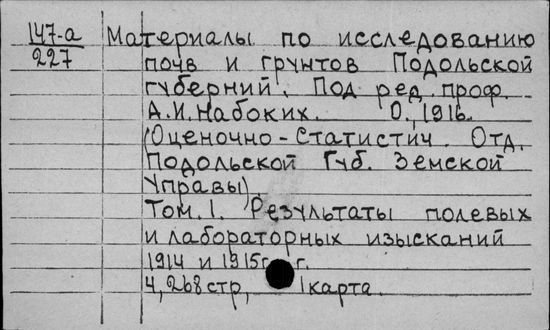 147-а
227
Материалы по исследованию
почв и грунтов Подольской
губерний. Под ред. проф.
А.И. Набоких. О., 1916.
(Оценочно-Статистич. Отд.
Подольской Губ. Земской
Управы).
Том. I. Результаты полевых
и лабораторных изысканий
1914 и 1915г. г.
4, 268 стр, 1 карта.